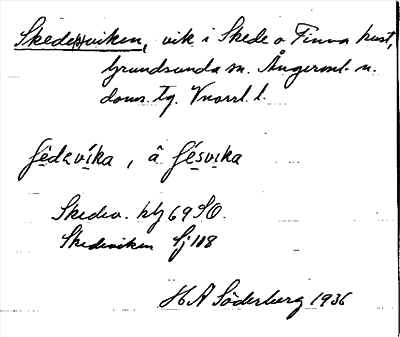 Skede(s)viken, vik i Skede o Finna kust,
Grundsunda sn. Ångerml. n.
doms. tg. Vnorrl. l.
fêdɛvíka, â fésvika
Skedev. hbj 69 SO.
Skedeviken Sj 108
H A Söderberg 1936